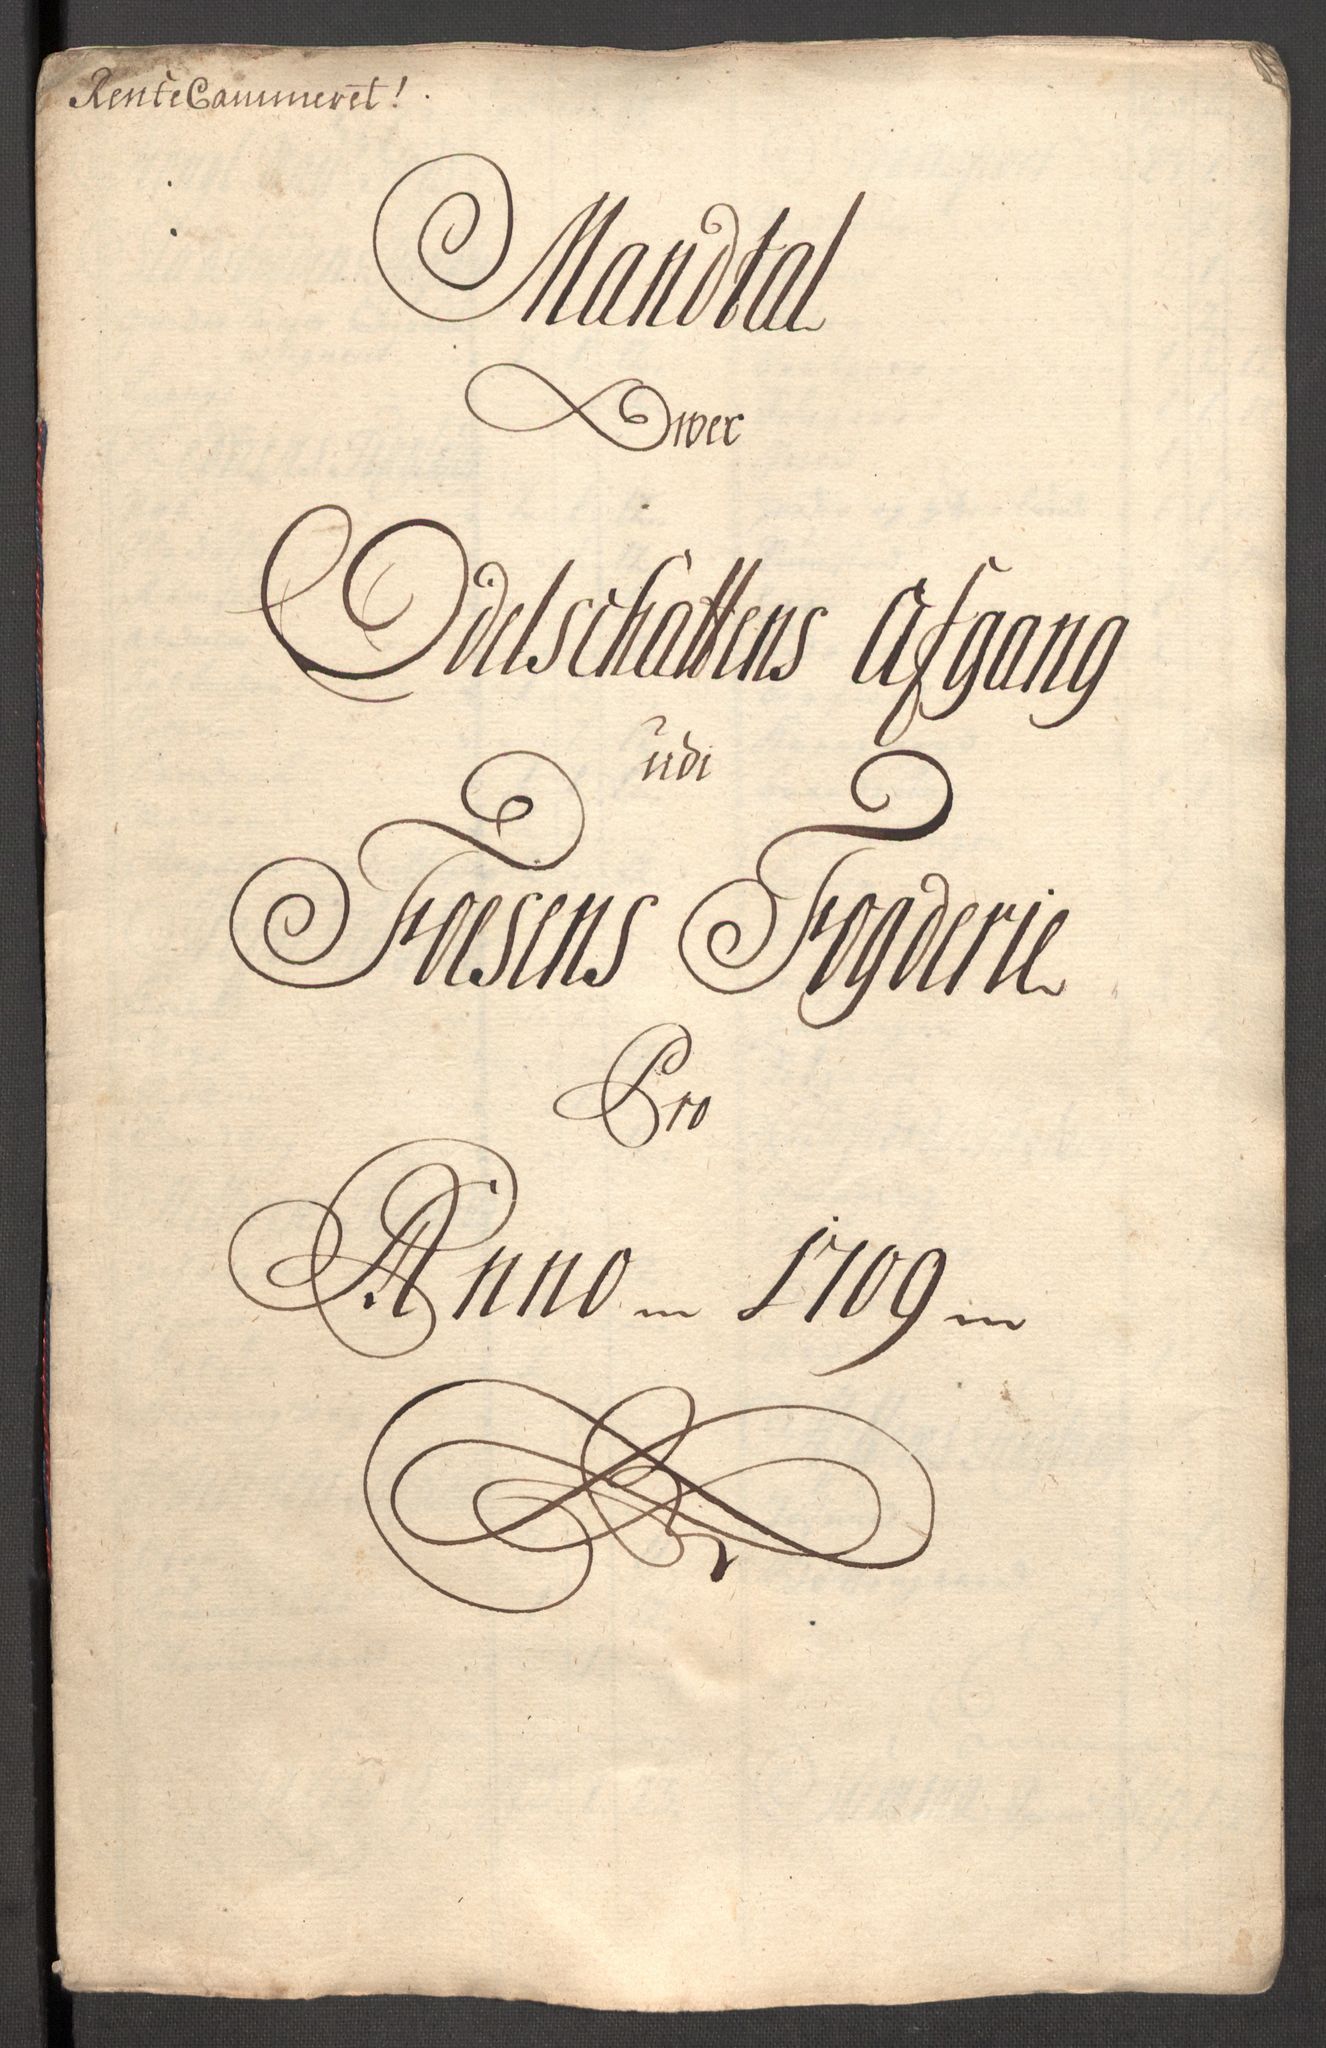 RenteCammeret!
Mandtal
Ower
Odelschattens Afgang
udi
Foesens Fogderie
Pro
Anno 1709